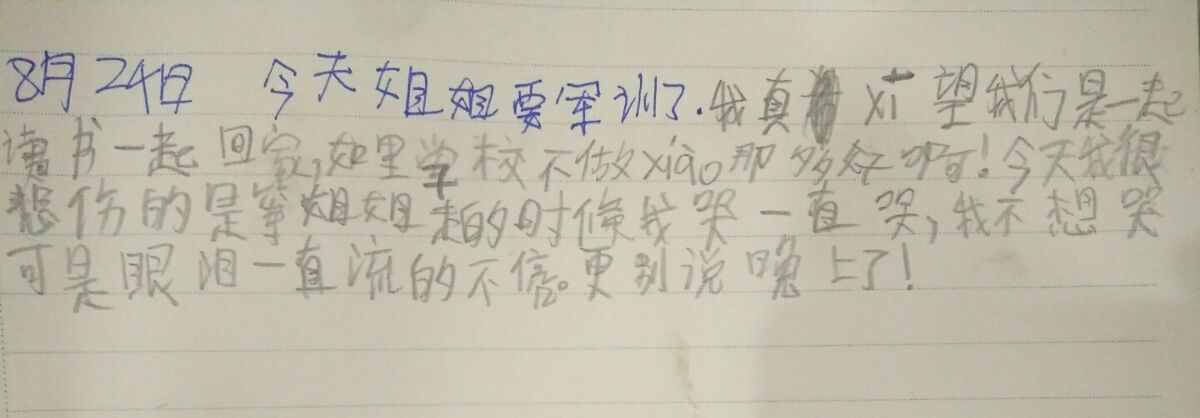 8月24日 今天姐姐要军训了.我真 xī 望我们是一起
读书一起回家,如里学校不做xiào那多好啊!今天我很
悲伤的是等姐姐来的时候我哭一直哭,我不想哭
可是眼泪一直流的不停。更别说晚上了!